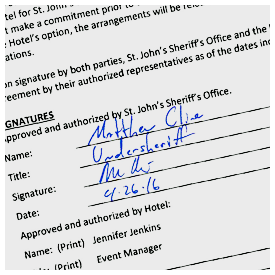 tel for St. John's
t make a commitment prior to
Hotel's option, the arrangements will be rele
ations.
on signature by both parties, St. John's Sheriff's Office and the
reement by their authorized representatives as of the dates in
SIGNATURES
Approved and authorized by St. John's Sheriff's Office.
Name: Matthew Cline
Title: Undersheriff
Signature:
Date: 4-26-16
Approved and authorized by Hotel:
Name: (Print) Jennifer Jenkins
(Print) Event Manager